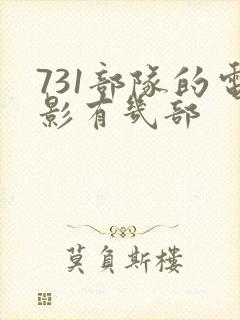 731部隊的電
影有幾部
莫負斯樓